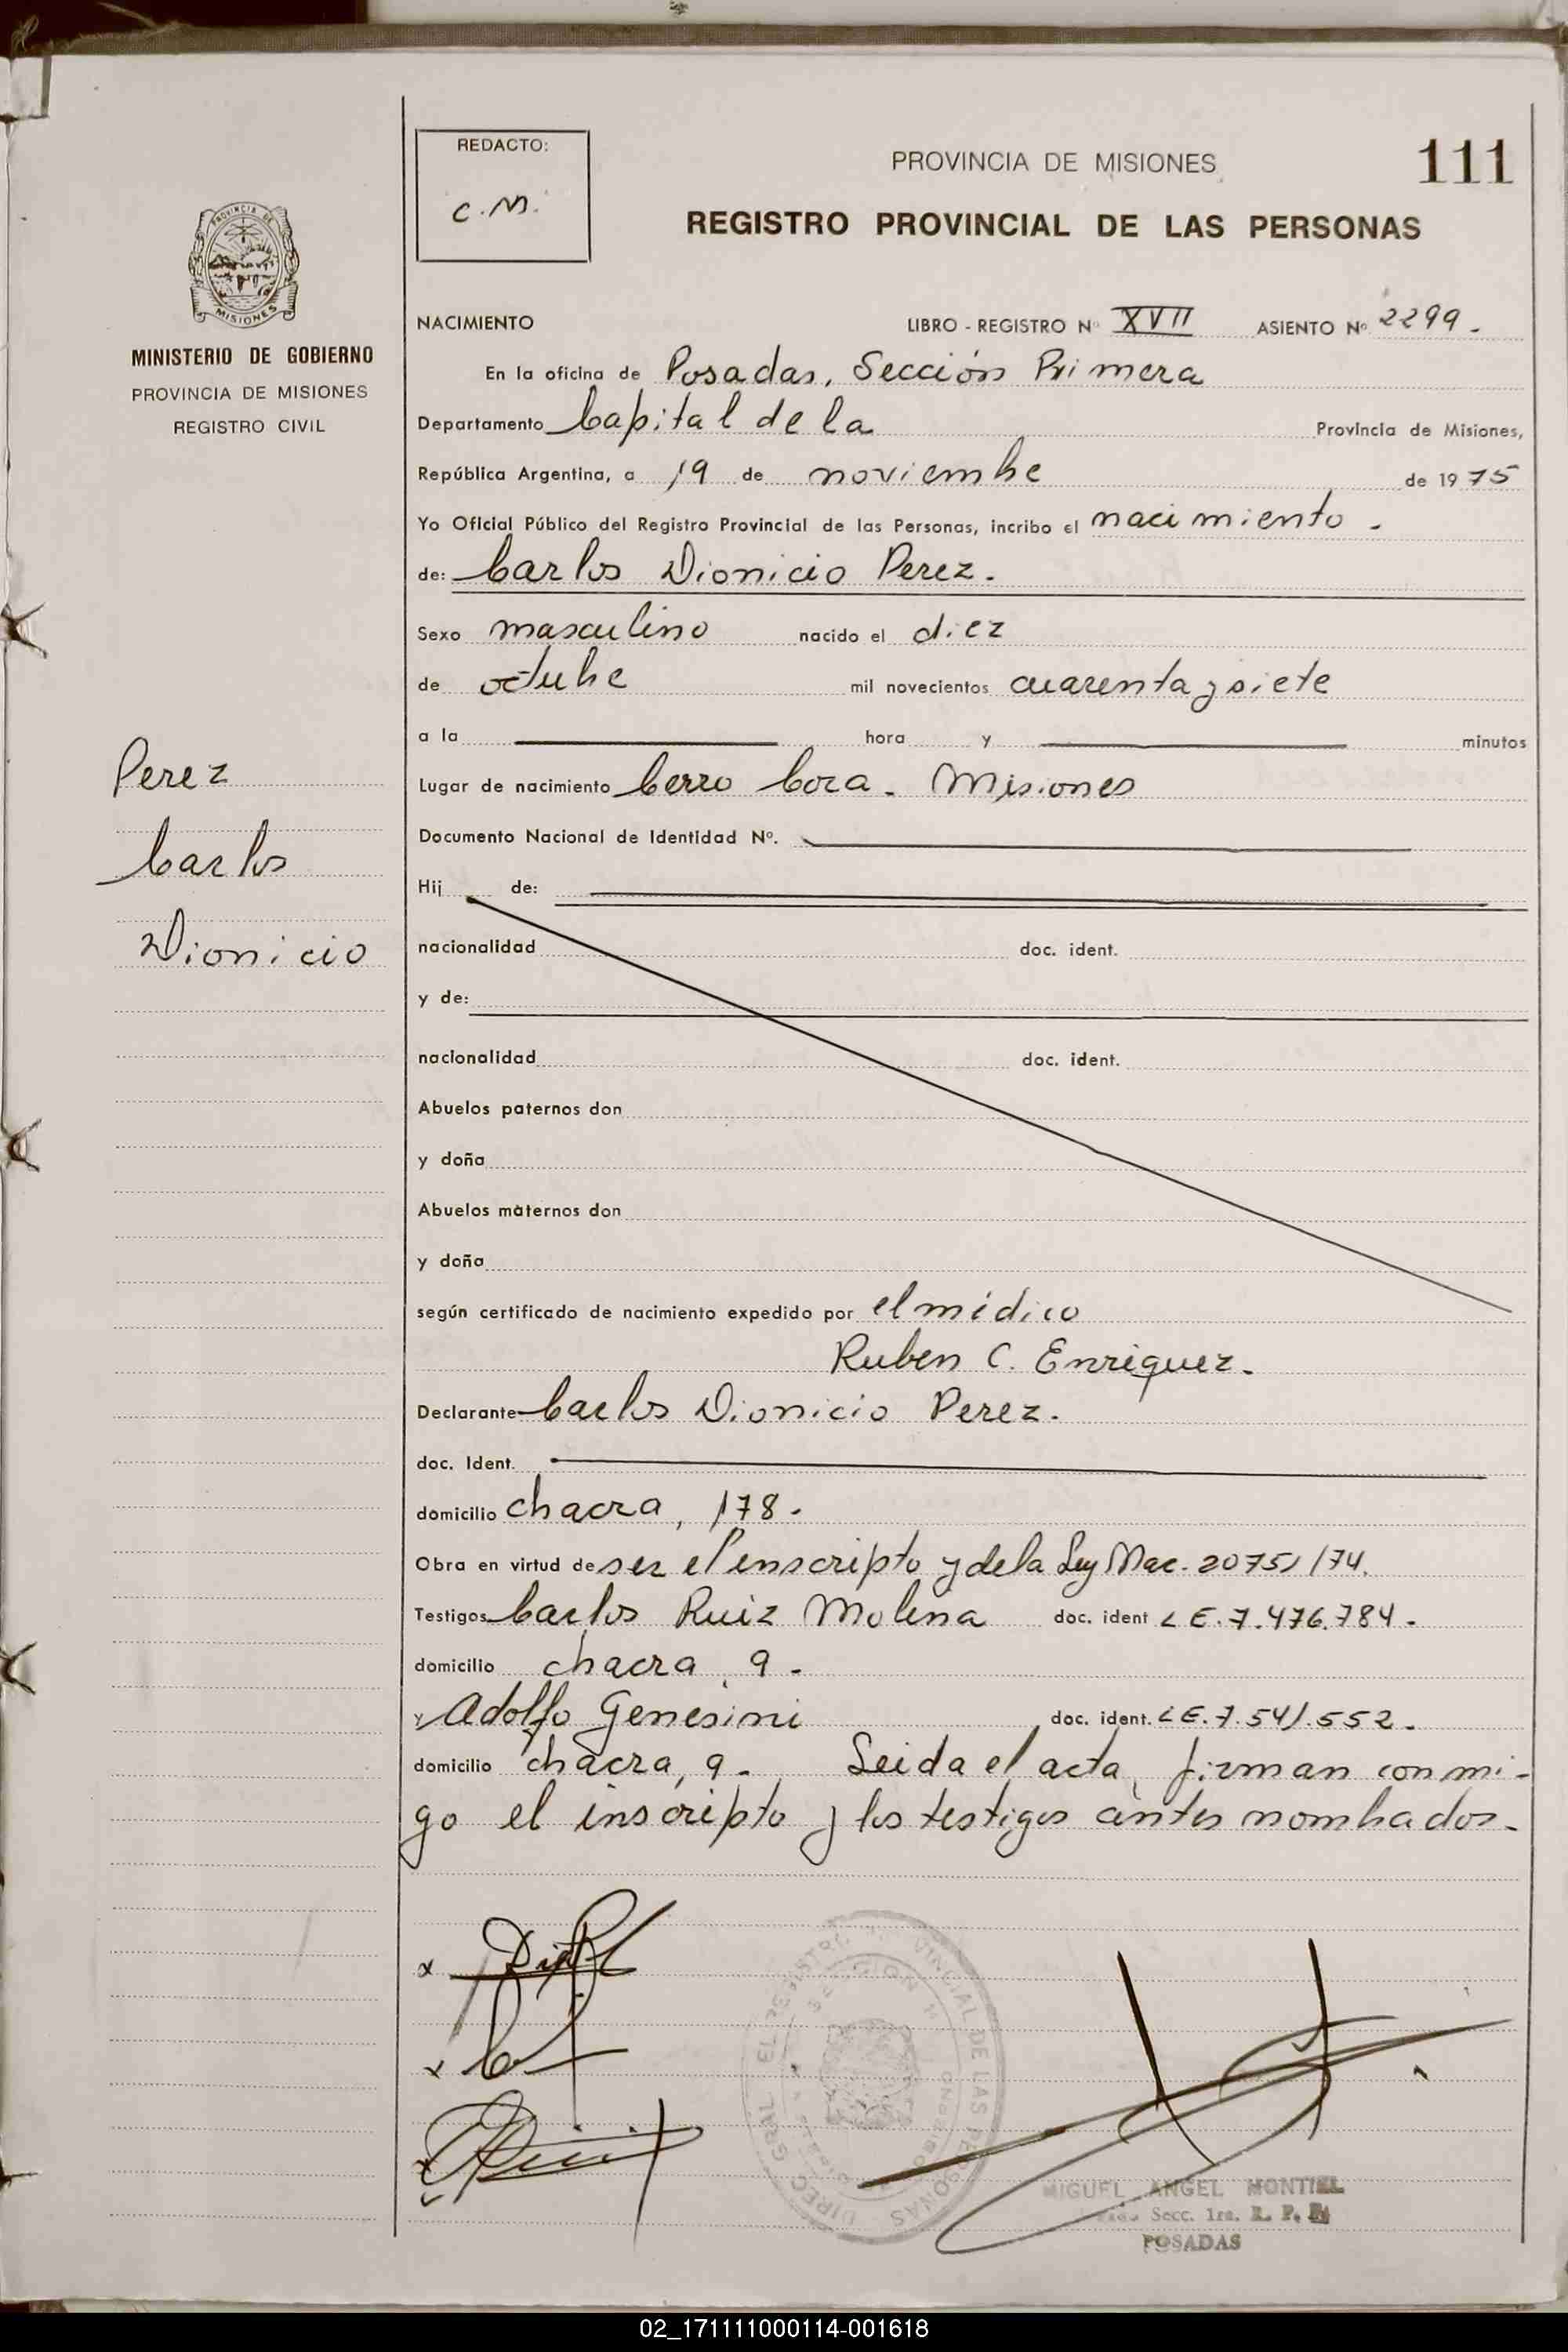 REDACTO:
C.M.
PROVINCIA DE MISIONES
111
REGISTRO PROVINCIAL DE LAS PERSONAS
PROVINCIA DE
MISIONES
MINISTERIO DE GOBIERNO
PROVINCIA DE MISIONES
REGISTRO CIVIL
NACIMIENTO LIBRO - REGISTRO Nº XVII ASIENTO Nº 2299.
En la oficina de Posadas, Sección Primera
Departamento Capital de la Provincia de Misiones,
República Argentina, a 19 de noviembre de 1975
Yo Oficial Público del Registro Provincial de las Personas, incribo el nacimiento.
de: Carlos Dionicio Perez.
Sexo masculino nacido el diez
de octubre mil novecientos cuarenta y siete
a la hora y minutos
Perez
Carlos
Dionicio
Lugar de nacimiento Cerro Cora. Misiones
Documento Nacional de Identidad Nº.
Hij de:
nacionalidad doc. ident.
y de:
nacionalidad doc. ident.
Abuelos paternos don
y doña
Abuelos maternos don
y doña
según certificado de nacimiento expedido por el médico
Ruben C. Enriquez.
Declarante Carlos Dionicio Perez.
doc. Ident.
domicilio chacra, 178.
Obra en virtud de ser el enscripto y de la Ley Nac. 20751/74.
Testigos Carlos Ruiz Molina doc. ident L E. 7.476.784.
domicilio chacra, 9.
y Adolfo Genesini doc. ident. L E. 7.541.552.
domicilio chacra, 9. Leida el acta, firman conmi-
go el inscripto y los testigos antes nombrados.
DIREC. GRAL. EL REGISTRO PROVINCIAL DE LAS PERSONAS
SECCION
MIGUEL ANGEL MONTIEL
Secc. 1ra. R. P. P.
POSADAS
02_171111000114-001618